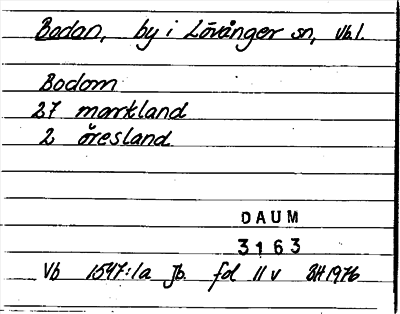 Bodan, by i Lövånger sn, Vb l.
Bodom
27 markland
2 öresland
DAUM
3163
Vb 1547:1a Jb. fol 11 v BH 1976